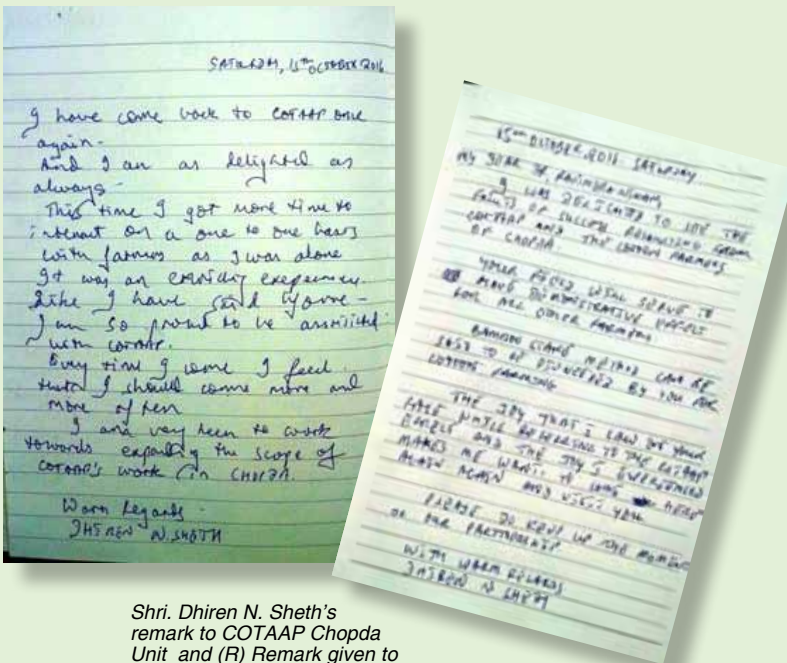 SATURDAY, 15TH OCTOBER 2016
I have come back to COTAAP once
again.
And I am as delighted as
always.
This time I got more time to
interact on a one to one basis
with farmers as I was alone
It was an exciting experience.
Like I have said before -
I am so proud to be associated
with COTAAP.
Every time I come I feel
that I should come more and
more often
I am very keen to work
towards expanding the scope of
COTAAP's work in CHOPDA.
Warm Regards.
DHIREN N. SHETH
15TH OCTOBER 2016 SATURDAY
MY DEAR
I WAS DELIGHTED TO SEE THE
FRUITS OF SUCCESS FROM
COTAAP AND THE COTTON FARMERS
OF CHOPDA.
YOUR FIELD WILL SERVE TO
HAVE DEMONSTRATIVE EFFECT
FOR ALL OTHER FARMERS
BAMBOO METHOD CAN BE
SAID TO BE PIONEERED BY YOU FOR
COTTON FARMING
THE JOY THAT I SAW ON YOUR
FACE WHILE REFERRING TO THE COTAAP
AND THE JOY I EXPERIENCED
MAKES ME WANT TO COME HERE
AGAIN AGAIN AND VISIT YOU
PLEASE DO KEEP UP THE
OF OUR PARTNERSHIP
WITH WARM REGARDS
DHIREN N SHETH
Shri. Dhiren N. Sheth's
remark to COTAAP Chopda
Unit and (R) Remark given to